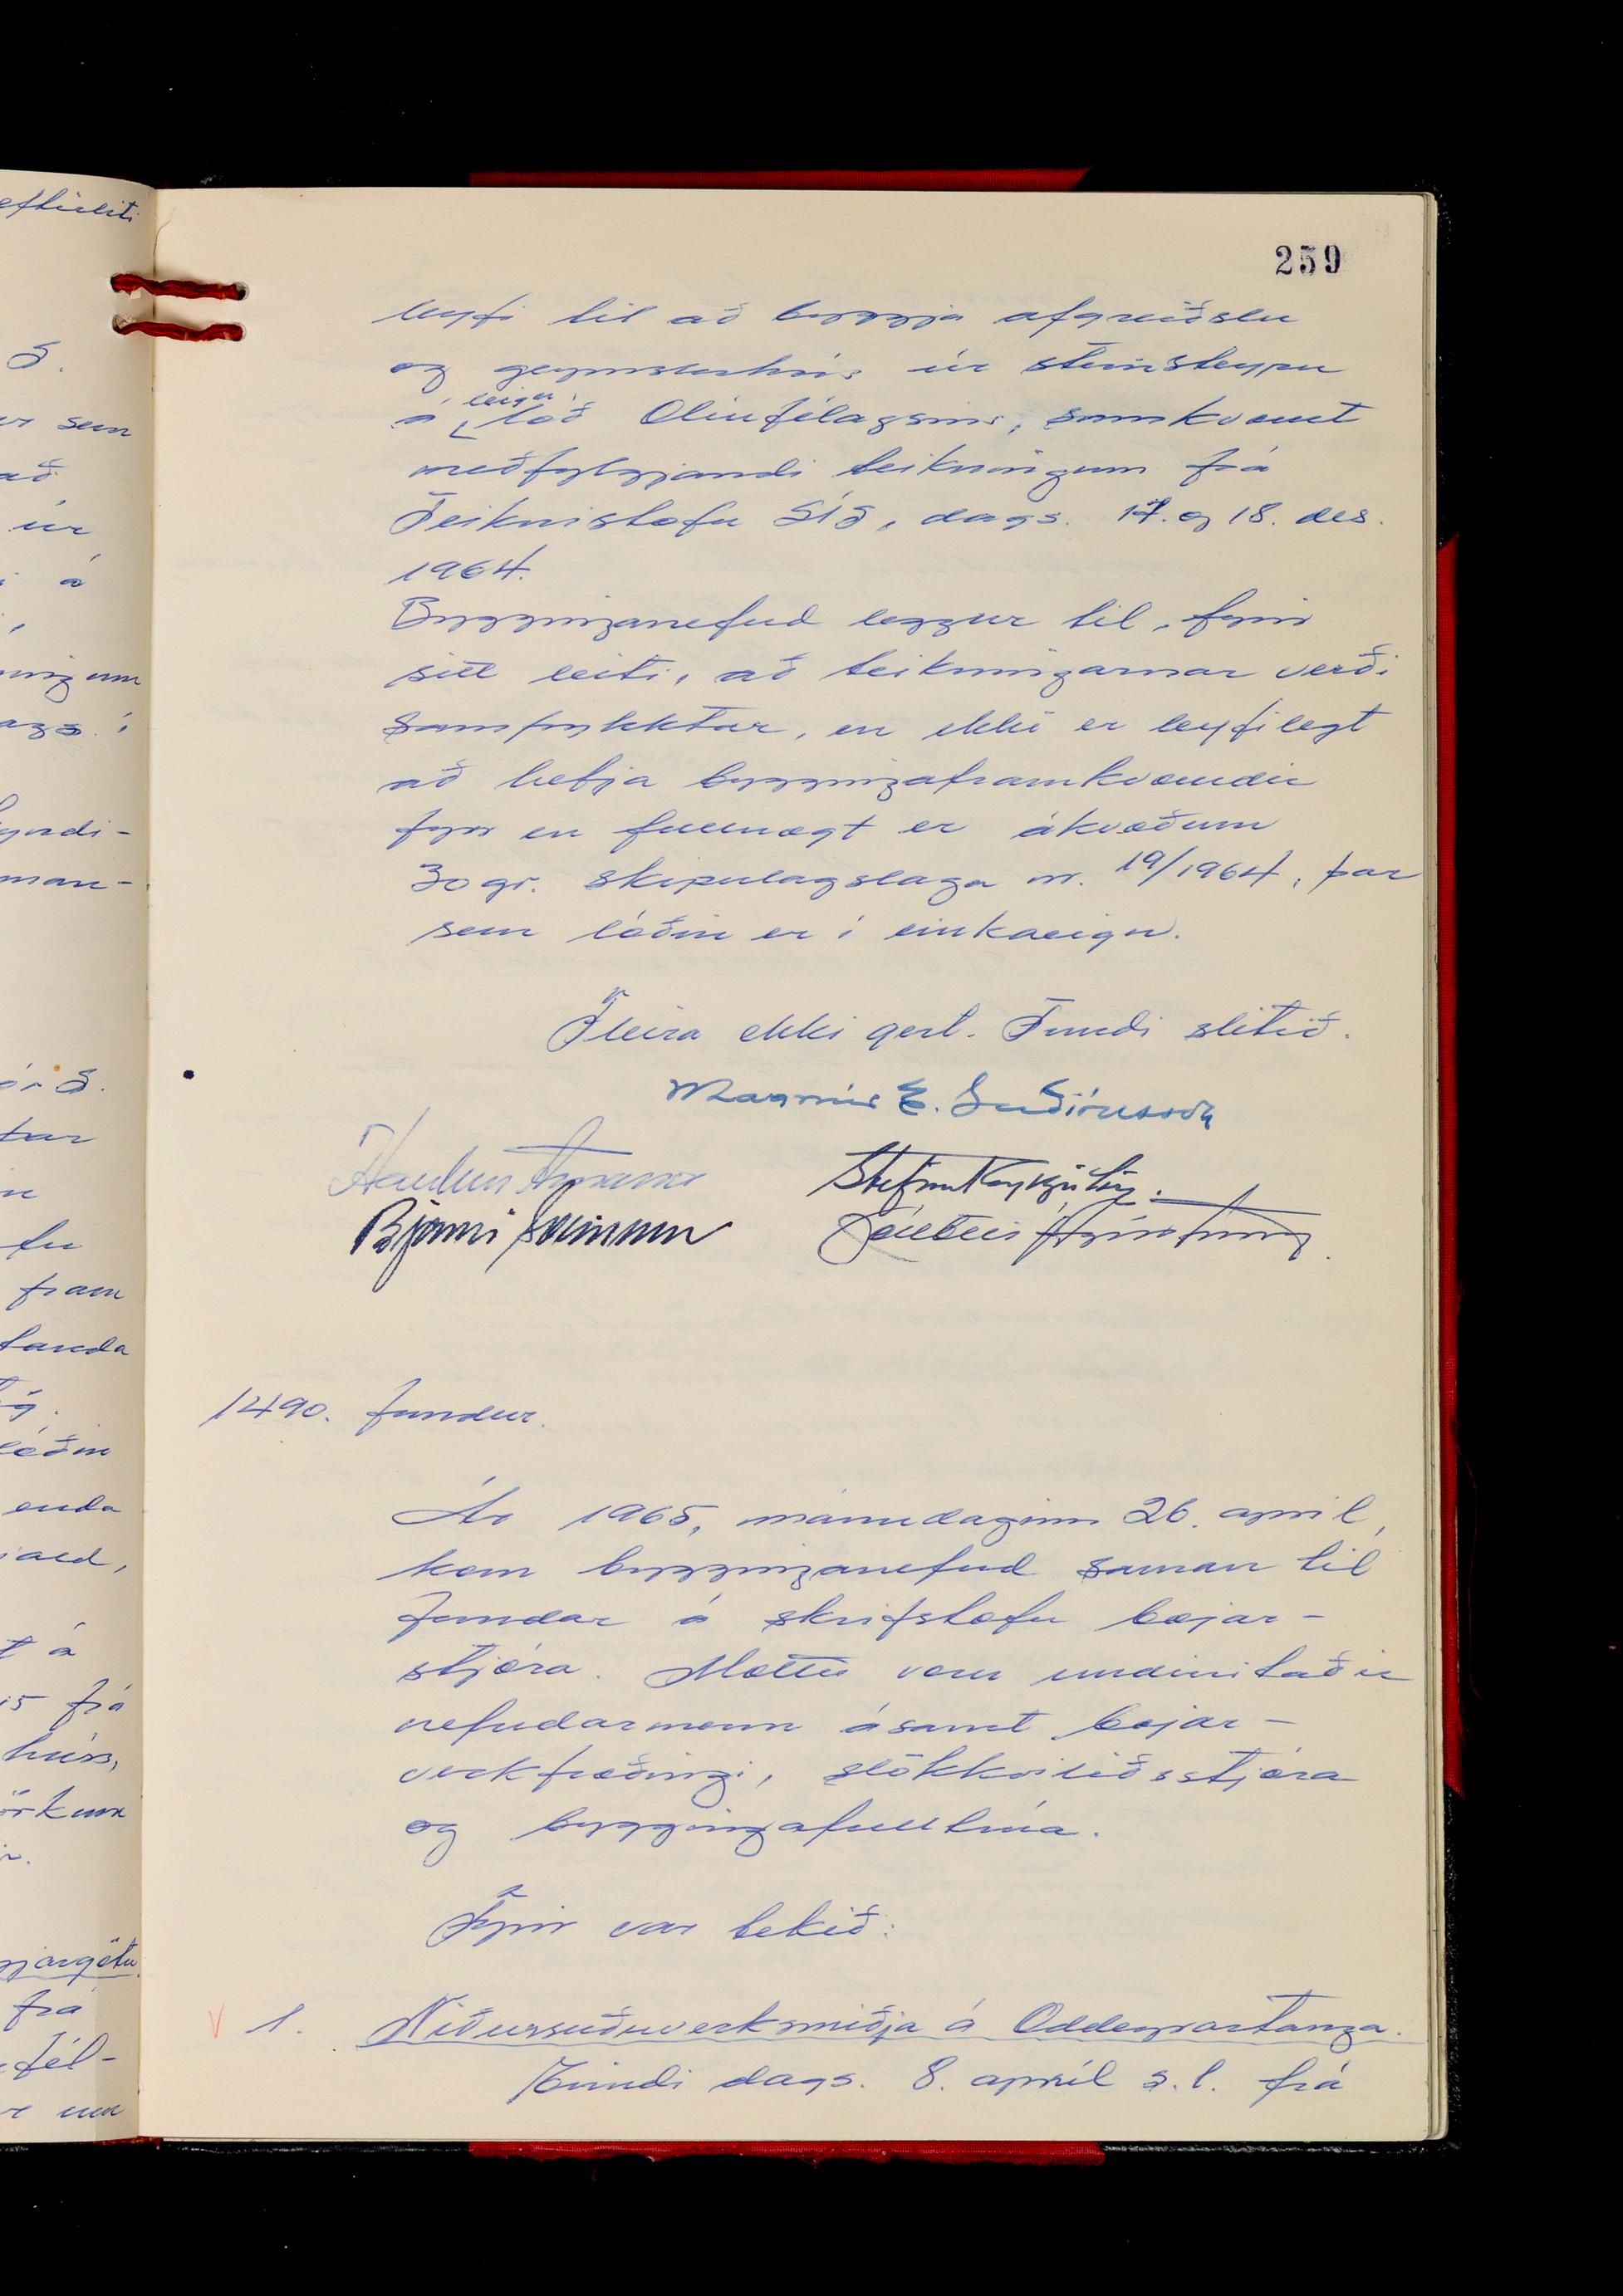 259
leyfi til að byggja afgreiðslu
og geymsluhús úr steinsteypu
á leigu lóð Olíufélagsins, samkvæmt
meðfylgjandi teikningum frá
Teiknistofu SÍS, dags. 17. og 18. des.
1964.
Bygginganefnd leggur til, fyrir
sitt leiti, að teikningarnar verði
samþykktar, en ekki er leyfilegt
að hefja byggingaframkvæmdir
fyrr en fullnægt er ákvæðum
30 gr. skipulagslaga nr. 19/1964, þar
sem lóðin er í einkaeign.
Fleira ekki gert. Fundi slitið.
Magnús E. Guðjónsson
Haukur Árnason Stefán Reykjalín.
Bjarni Sveinsson
1490. fundur.
Ár 1965, mánudaginn 26. apríl,
kom bygginganefnd saman til
fundar á skrifstofu bæjar-
stjóra. Mættir voru undirritaðir
nefndarmenn ásamt bæjar-
verkfræðingi, slökkviliðsstjóra
og byggingafulltrúa.
Fyrir var tekið:
V 1. Niðursuðuverksmiðja á Oddeyrartanga.
Erindi dags. 8. apríl s.l. frá